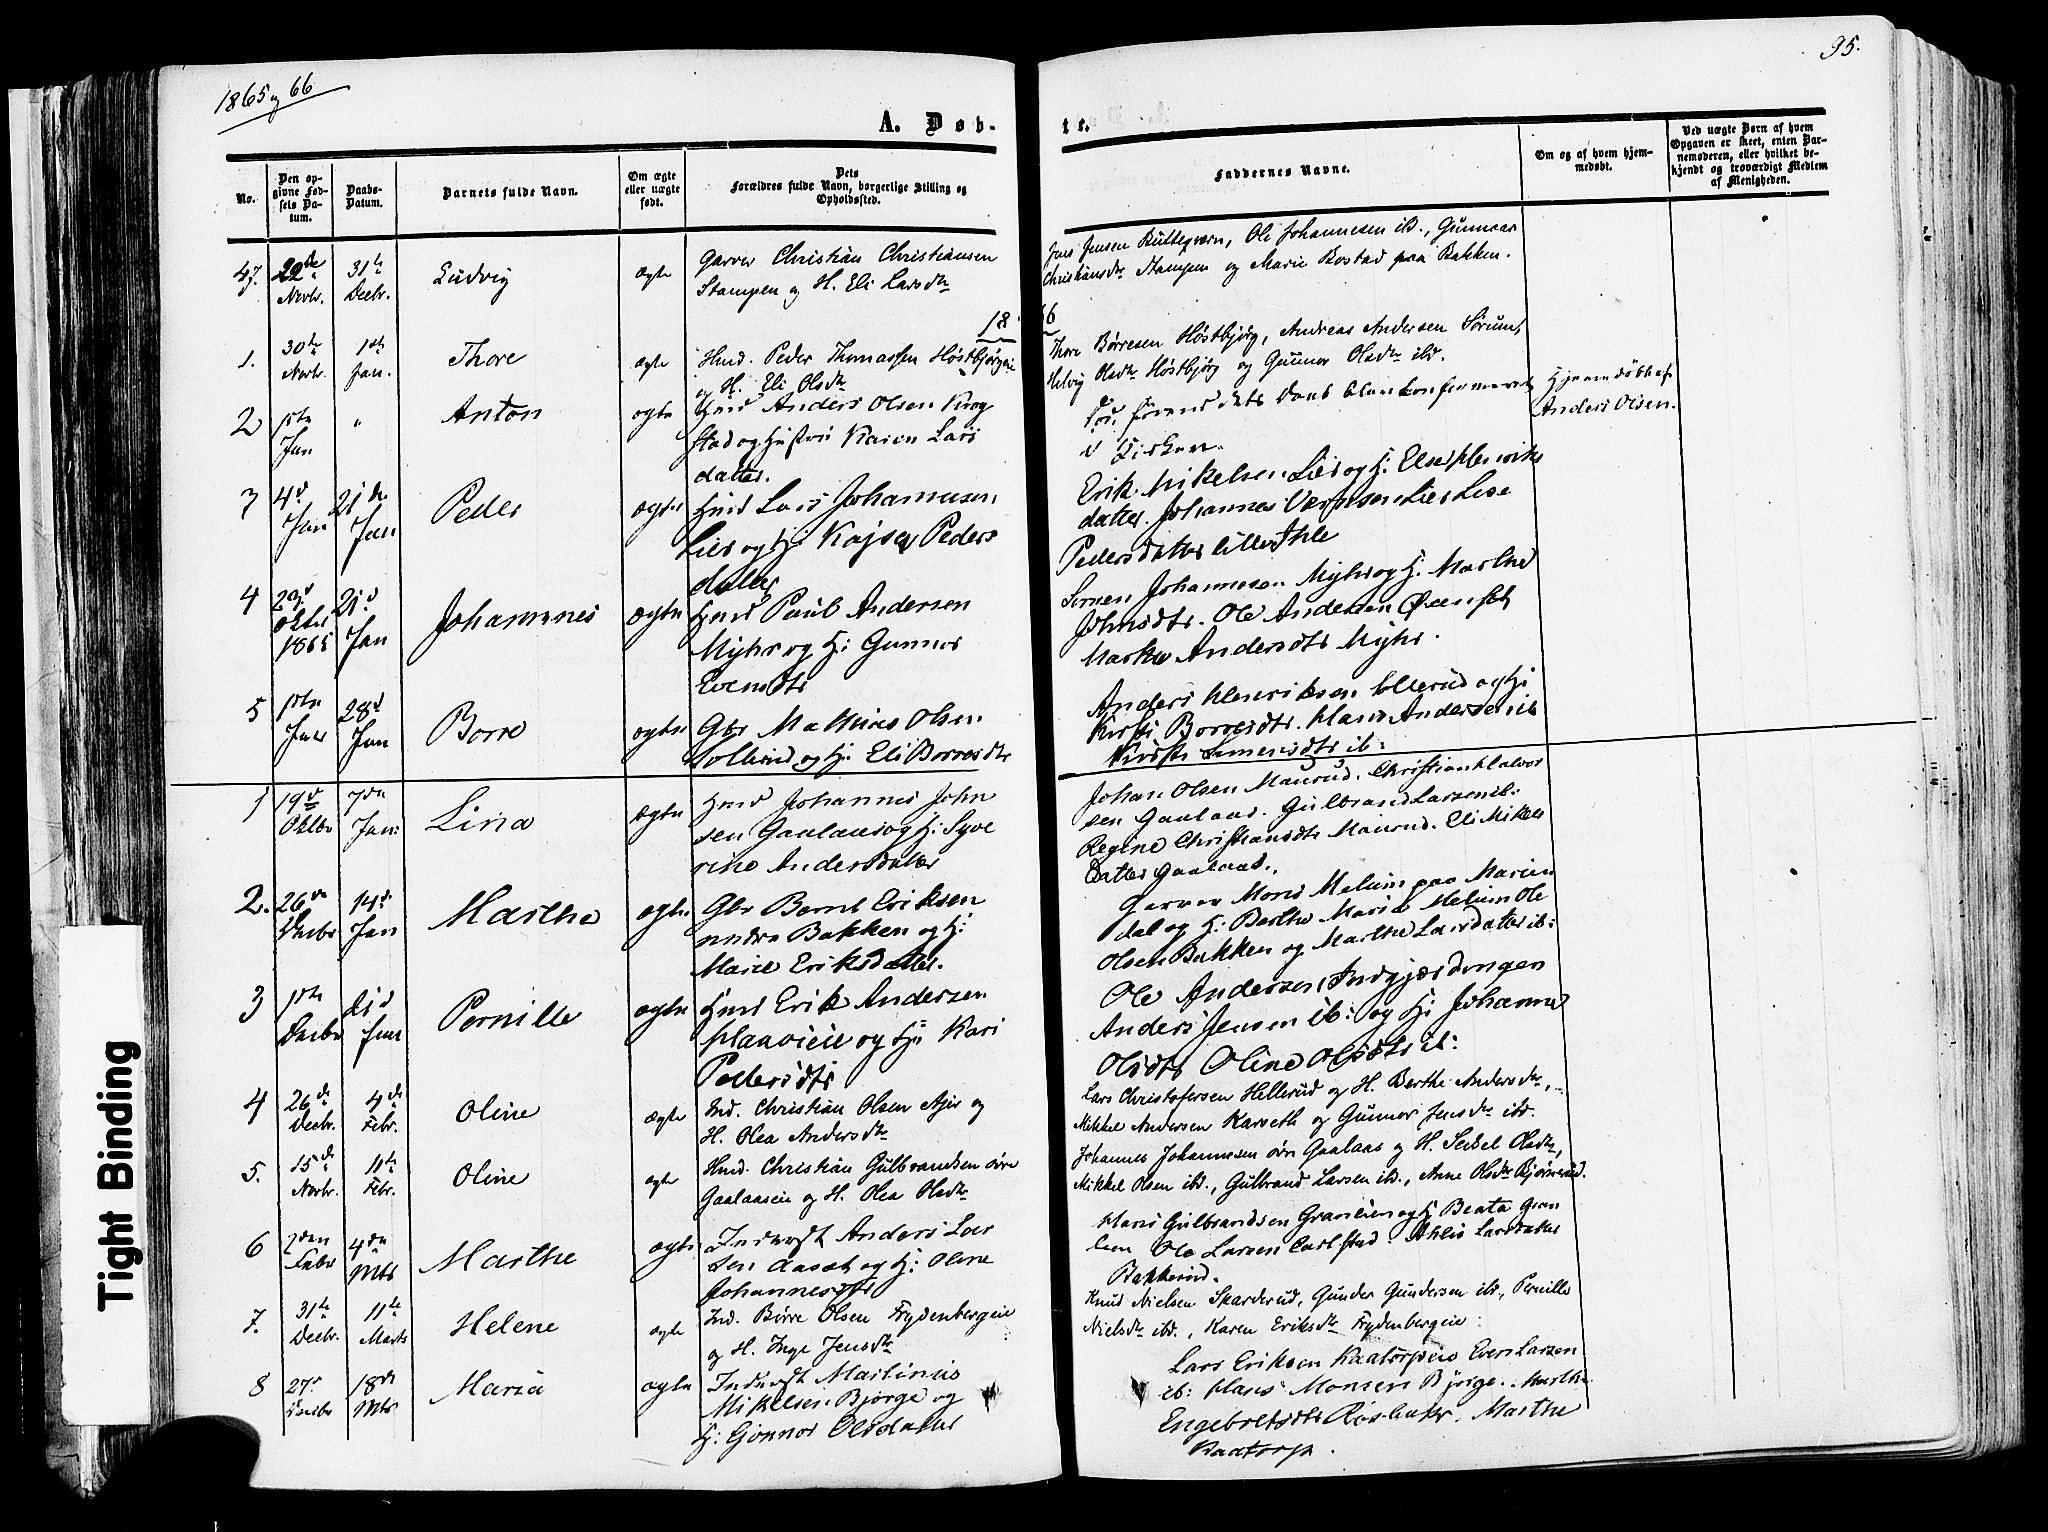 1865 og 66
95.
A. Døb-
te.
No.
Den op-
givne Fød-
sels Da-
tum.
Daabs-
Datum.
Barnets fulde Navn.
Om ægte
eller uægte
født.
Dets
Forældres fulde Navn, borgerlige Stilling og
Opholdssted.
Faddernes Navne.
Om og af hvem hjem-
medøbt.
Ved uægte Børn af hvem
Opgaven er skeet, enten Bar-
nemoderen, eller hvilket be-
kjendt og troværdigt Medlem
af Menigheden.
47. 22de Novbr. 31te Decbr. Ludvig ægte
Garver Christian Christiansen
Stampen og H. Eli Larsdtr
Jens Jensen, Ole Johannesen ibd., Gunnar
Christiansdtr Stampen og Marie Rostad paa Bakken.
1866
1. 30te Novbr. 1ste Jan. Thore ægte
Hmd. Peder Thomassen Høstbjørgeie
og H. Eli Olsdtr
Thore Børresen Høstbjørg, Andreas Andersen Sørum,
Helvig Olsdtr Høstbjørg og Gunnor Olsdtr ibd.
2 1ste Jan " Anton ægte
Hmd Anders Olsen Krog
stad og Hustru Karen Lars
datter.
død førend dets Daab blev konfirmeret
i Kirken.
Hjemmedøbt af
Anders Olsen.
3 4d Jan 21de Jan Peder ægte
Hmd Lars Johannesen
Lier og H: Kajsa Peders
datter
Erik Mikelsen Lier og H: Else Henriks
datter. Johannes Lier Lise
Pedersdatter lille Ihle
4 29d Oktbr 1865 21d Jan Johannes ægte
Hmd Paul Andersen
Myhr og H: Gunnor
Evensdtr
Simen Johannesen Myhr og H: Marthe
Johnsdtr. Ole Andersen Øveraset
Marthe Andersdtr Myhr.
5 1ste Jan 28d Jan Borre ægte
Gbr Mathias Olsen
Sollerud og H: Eli Borresdtr
Anders Henriksen Sollerud og H:
Kirsti Borresdtr. Hans Andersen ib
Kirsti Simensdtr ib:
1 19d Oktbr 7de Jan: Lina ægte
Hmd Johannes John
sen Gaalaas og H: Syve
rine Andersdatter
Johan Olsen Maurud. Christian Halvor
sen Gaalaas. Gulbrand Larsen ib:
Regine Christiansdtr Maurud. Eli Mikels
datter Gaalaas.
2. 26de Decbr 14d Jan Marthe ægte
Gbr Bernt Eriksen
nedre Bakken og H:
Marie Eriksdatter.
Garver Mons Melum paa Marien
dal og H: Berthe Marie Melum Ole
Olsen Bakken og Marthe Larsdatter ib:
3 1ste Decbr 21d Jan Pernille ægte
Hmd Erik Andersen
Haavieie og H: Kari
Pedersdtr
Ole Andersen Indgjærdingen
Anders Jensen ib: og H: Johanne
Olsdtr Oline Olsdtr ib:
4 26de Decbr. 4de Febr. Oline ægte
Ind. Christian Olsen Ajer og
H. Olea Andersdtr
Lars Christofersen Hellerud og H. Berthe Andersdtr,
Mikkel Andersen Karseth og Gunnor Jensdtr ibd.
5. 15de Novbr. 11te Febr. Oline ægte
Hmd. Christian Gulbrandsen øvre
Gaalaaseie og H. Olea Olsdtr
Johannes Johannesen øvre Gaalaas og H. Seksel Olsdtr,
Mikkel Olsen ibd., Gulbrand Larsen ibd., Anne Olsdtr Bjørnerud.
6 2den Febr 4de Mts Marthe ægte
Inderst Anders Lar
sen Aasæt og H: Oline
Johannesdtr
Hans Gulbrandsen Granlien og H: Beata Gran
lien Ole Larsen Carlstad. Larsdatter
Bakkerud.
7. 31te Decbr. 11te Marts Helene ægte
Ind. Børre Olsen Frydenbergeie
og H. Inge Jensdtr
Knud Nielsen Skarderud, Gunder Gundersen ibd, Pernille
Nielsdtr ibd., Karen Eriksdtr Frydenbergeie.
8 27d Decbr 18de Mts Maria ægte
Inderst Martinus
Mikelsen Bjørge og
H: Gonnor Olsdatter
Lars Eriksen Kaatorpeie Even Larsen
ib: Hans Monsen Bjørge. Marthe
Engebretsdtr Rosbakke. Marthe
Kaatorp.
Tight Binding